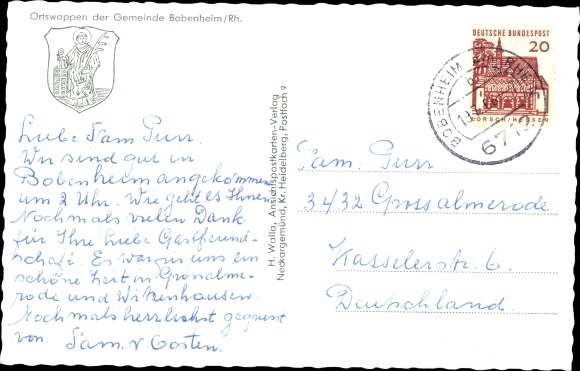 Ortswappen der Gemeinde Bobenheim/Rh.
Liebe Fam. Gurr.
Wir sind gut in
Bobenheim angekommen
um 2 Uhr. Wie geht es Ihnen
Nochmals vielen Dank
für Ihre Liebe Gastfreund-
schaft. Es war für uns ein
schöne Zeit in Grosalme-
rode und Witzenhausen.
Nochmals herzlichst gegrüsst
von. Fam. v Oosten.
H. Walla, Ansichtspostkarten-Verlag
Neckargemünd, Kr. Heidelberg, Postfach 9
DEUTSCHE BUNDESPOST
20
LORSCH/HESSEN
BOBENHEIM
671
Fam. Gurr
3432 Grossalmerode
Kasselerstr. 6.
Deutschland.